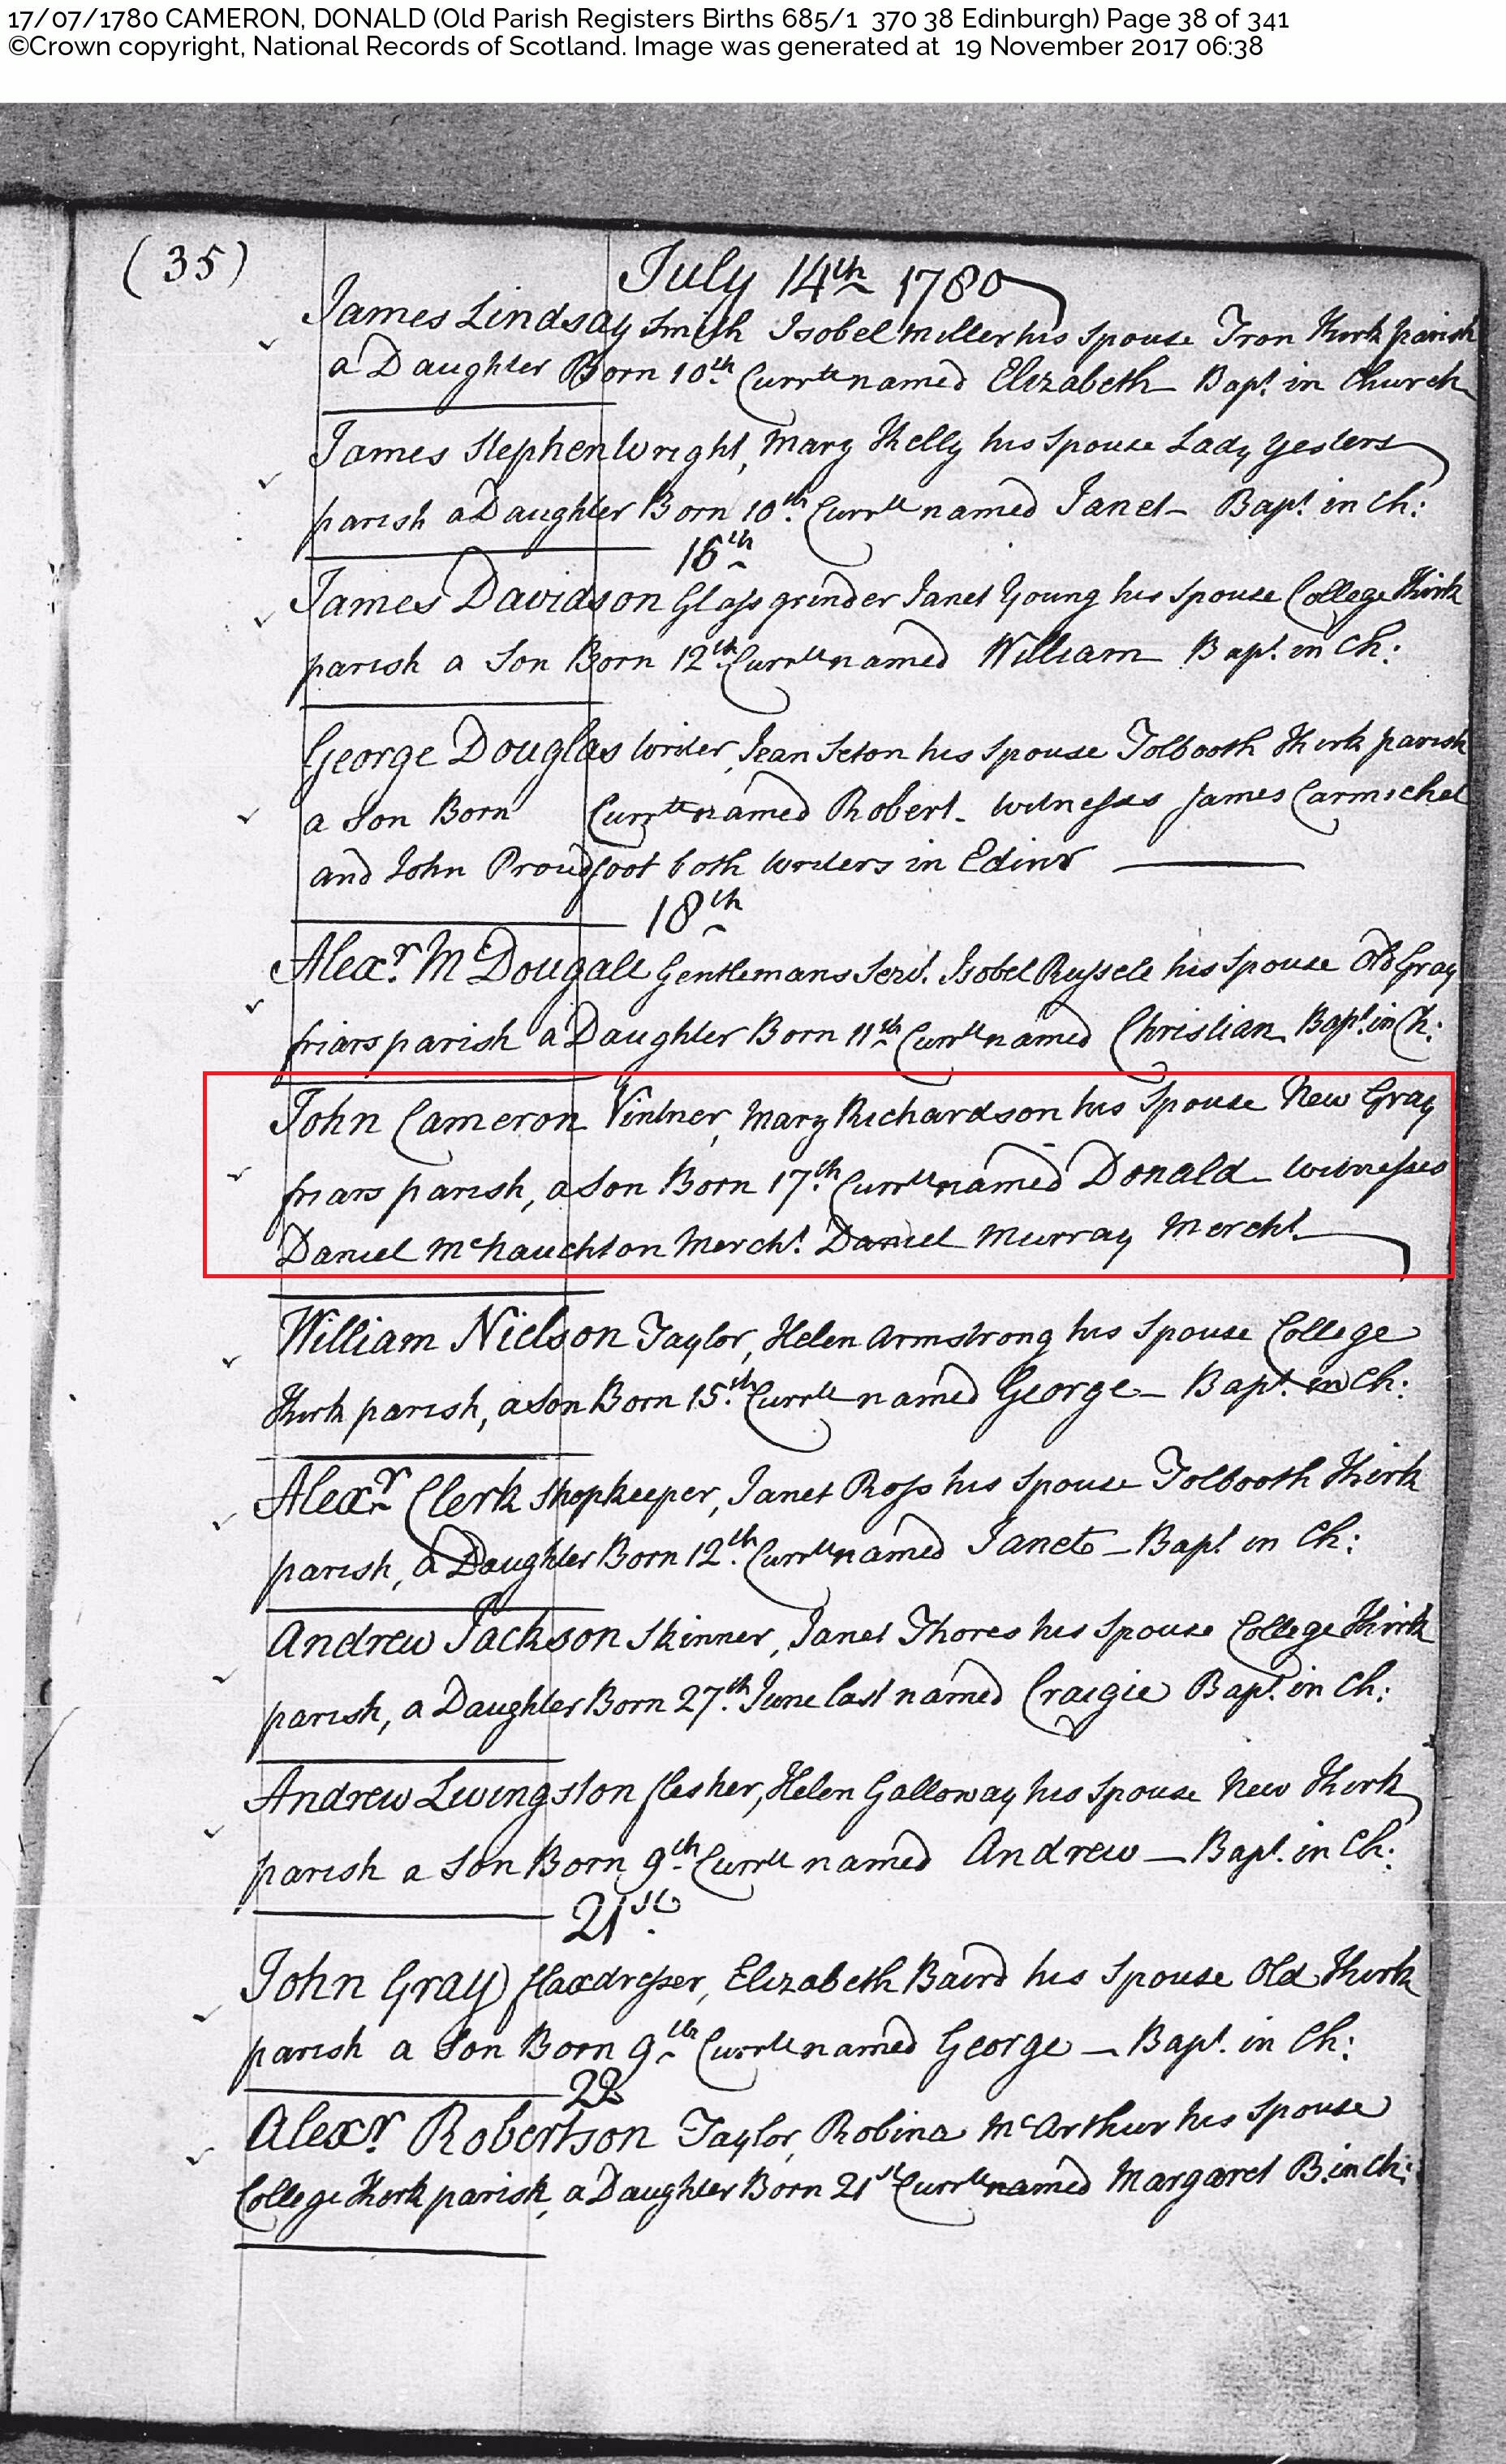 17/07/1780 CAMERON, DONALD (Old Parish Registers Births 685/1 370 38 Edinburgh) Page 38 of 341
©Crown copyright, National Records of Scotland. Image was generated at 19 November 2017 06:38
(35)
July 14th 1780
James Lindsay Smith Isobel Miller his Spouse Tron Kirk parish
a Daughter Born 10th Currtt named Elizabeth – Bapt. in Church
James Stephen Wright, Mary Kelly his Spouse Lady Yesters
parish a Daughter Born 10th Currtt named Janet – Bapt. in Ch:
16th
James Davidson Glass grinder Janet Young his Spouse College Kirk
parish a Son Born 12th Currtt named William – Bapt. in Ch:
George Douglas Writer, Jean Seton his Spouse Tolbooth Kirk parish
a Son Born Currtt named Robert – Witnesses James Carmichel
and John Proudfoot both Writers in Edinr
18th
Alexr. McDougall Gentlemans Servt. Isobel Russell his Spouse Old Gray
friars parish a Daughter Born 11th Currtt named Christian Bapt. in Ch:
John Cameron Vintner, Mary Richardson his Spouse New Gray
friars parish, a Son Born 17th Currtt named Donald – Witnesses
Daniel McNaughton Mercht. Daniel Murray Mercht.
William Nielson Taylor, Helen Armstrong his Spouse College
Kirk parish, a Son Born 15th Currtt named George – Bapt. in Ch:
Alexr Clerk Shopkeeper, Janet Ross his Spouse Tolbooth Kirk
parish, a Daughter Born 12th Currtt named Janet – Bapt in Ch:
Andrew Jackson Skinner, Janet Thores his Spouse College Kirk
parish, a Daughter Born 27th June last named Craigie Bapt. in Ch:
Andrew Livingston flesher, Helen Galloway his Spouse New Kirk
parish a Son Born 9th Currtt named Andrew – Bapt. in Ch:
21st
John Gray flaxdresser, Elizabeth Baird his Spouse Old Kirk
parish a Son Born 9th Currtt named George – Bapt. in Ch:
22
Alexr. Robertson Taylor, Robina McArthur his Spouse
College Kirk parish, a Daughter Born 21st Currtt named Margaret B. in Ch: